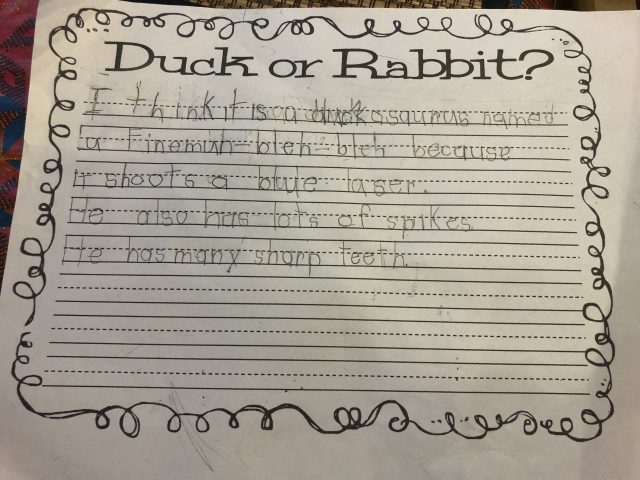 Duck or Rabbit?
I think it is a duckosaurus named
a Finemuh-bleh-bleh because
it shoots a blue laser.
He also has lots of spikes
He has many sharp teeth.